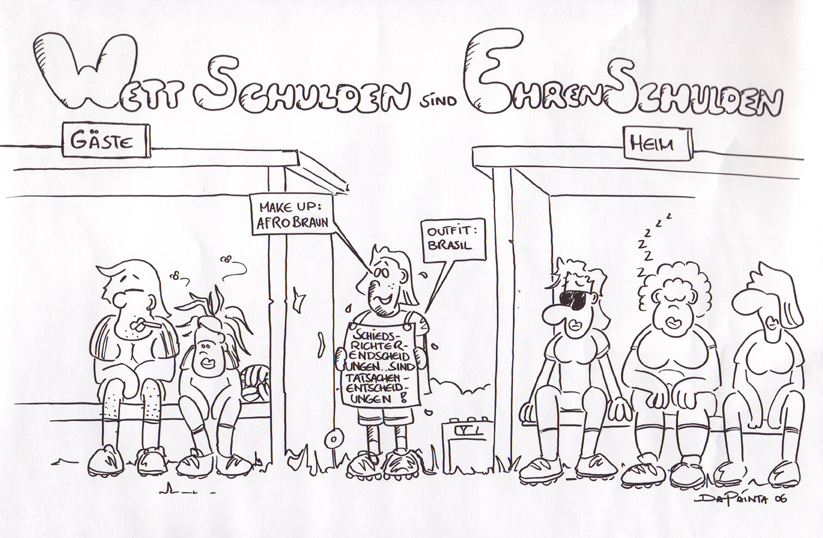 WETT SCHULDEN SIND EHRENSCHULDEN
GÄSTE
HEIM
MAKE UP:
AFROBRAUN
OUTFIT:
BRASIL
SCHIEDS-
RICHTER-
ENDSCHEID
UNGEN...SIND
TATSACHEN-
-ENTSCHEID-
UNGEN!
z z z z z z
DAPAINTA 06